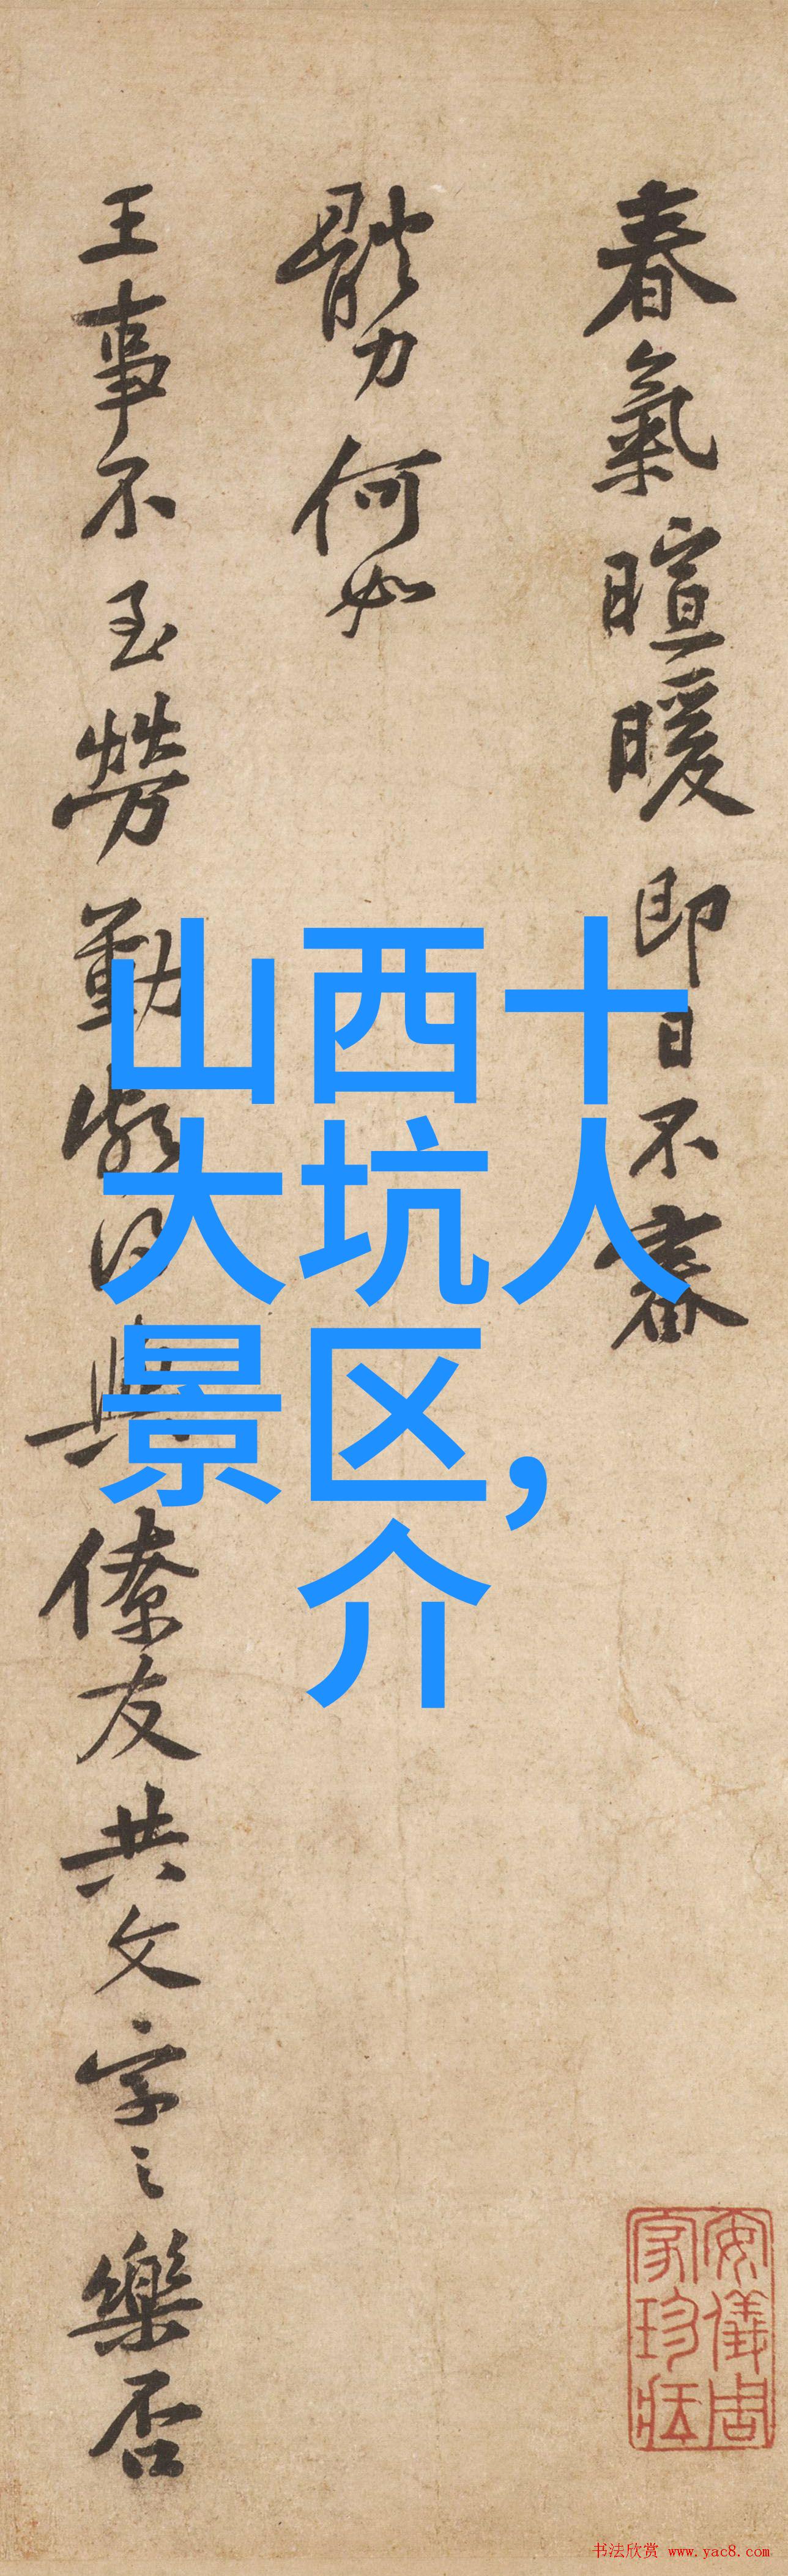 春氣暄暖即日不審
體力何如
王事不至勞勤頗得與僚友共文字之樂否
山西十
大坑人
景区,
介
安儀周
家珍藏
书法欣赏 www.yac8.com